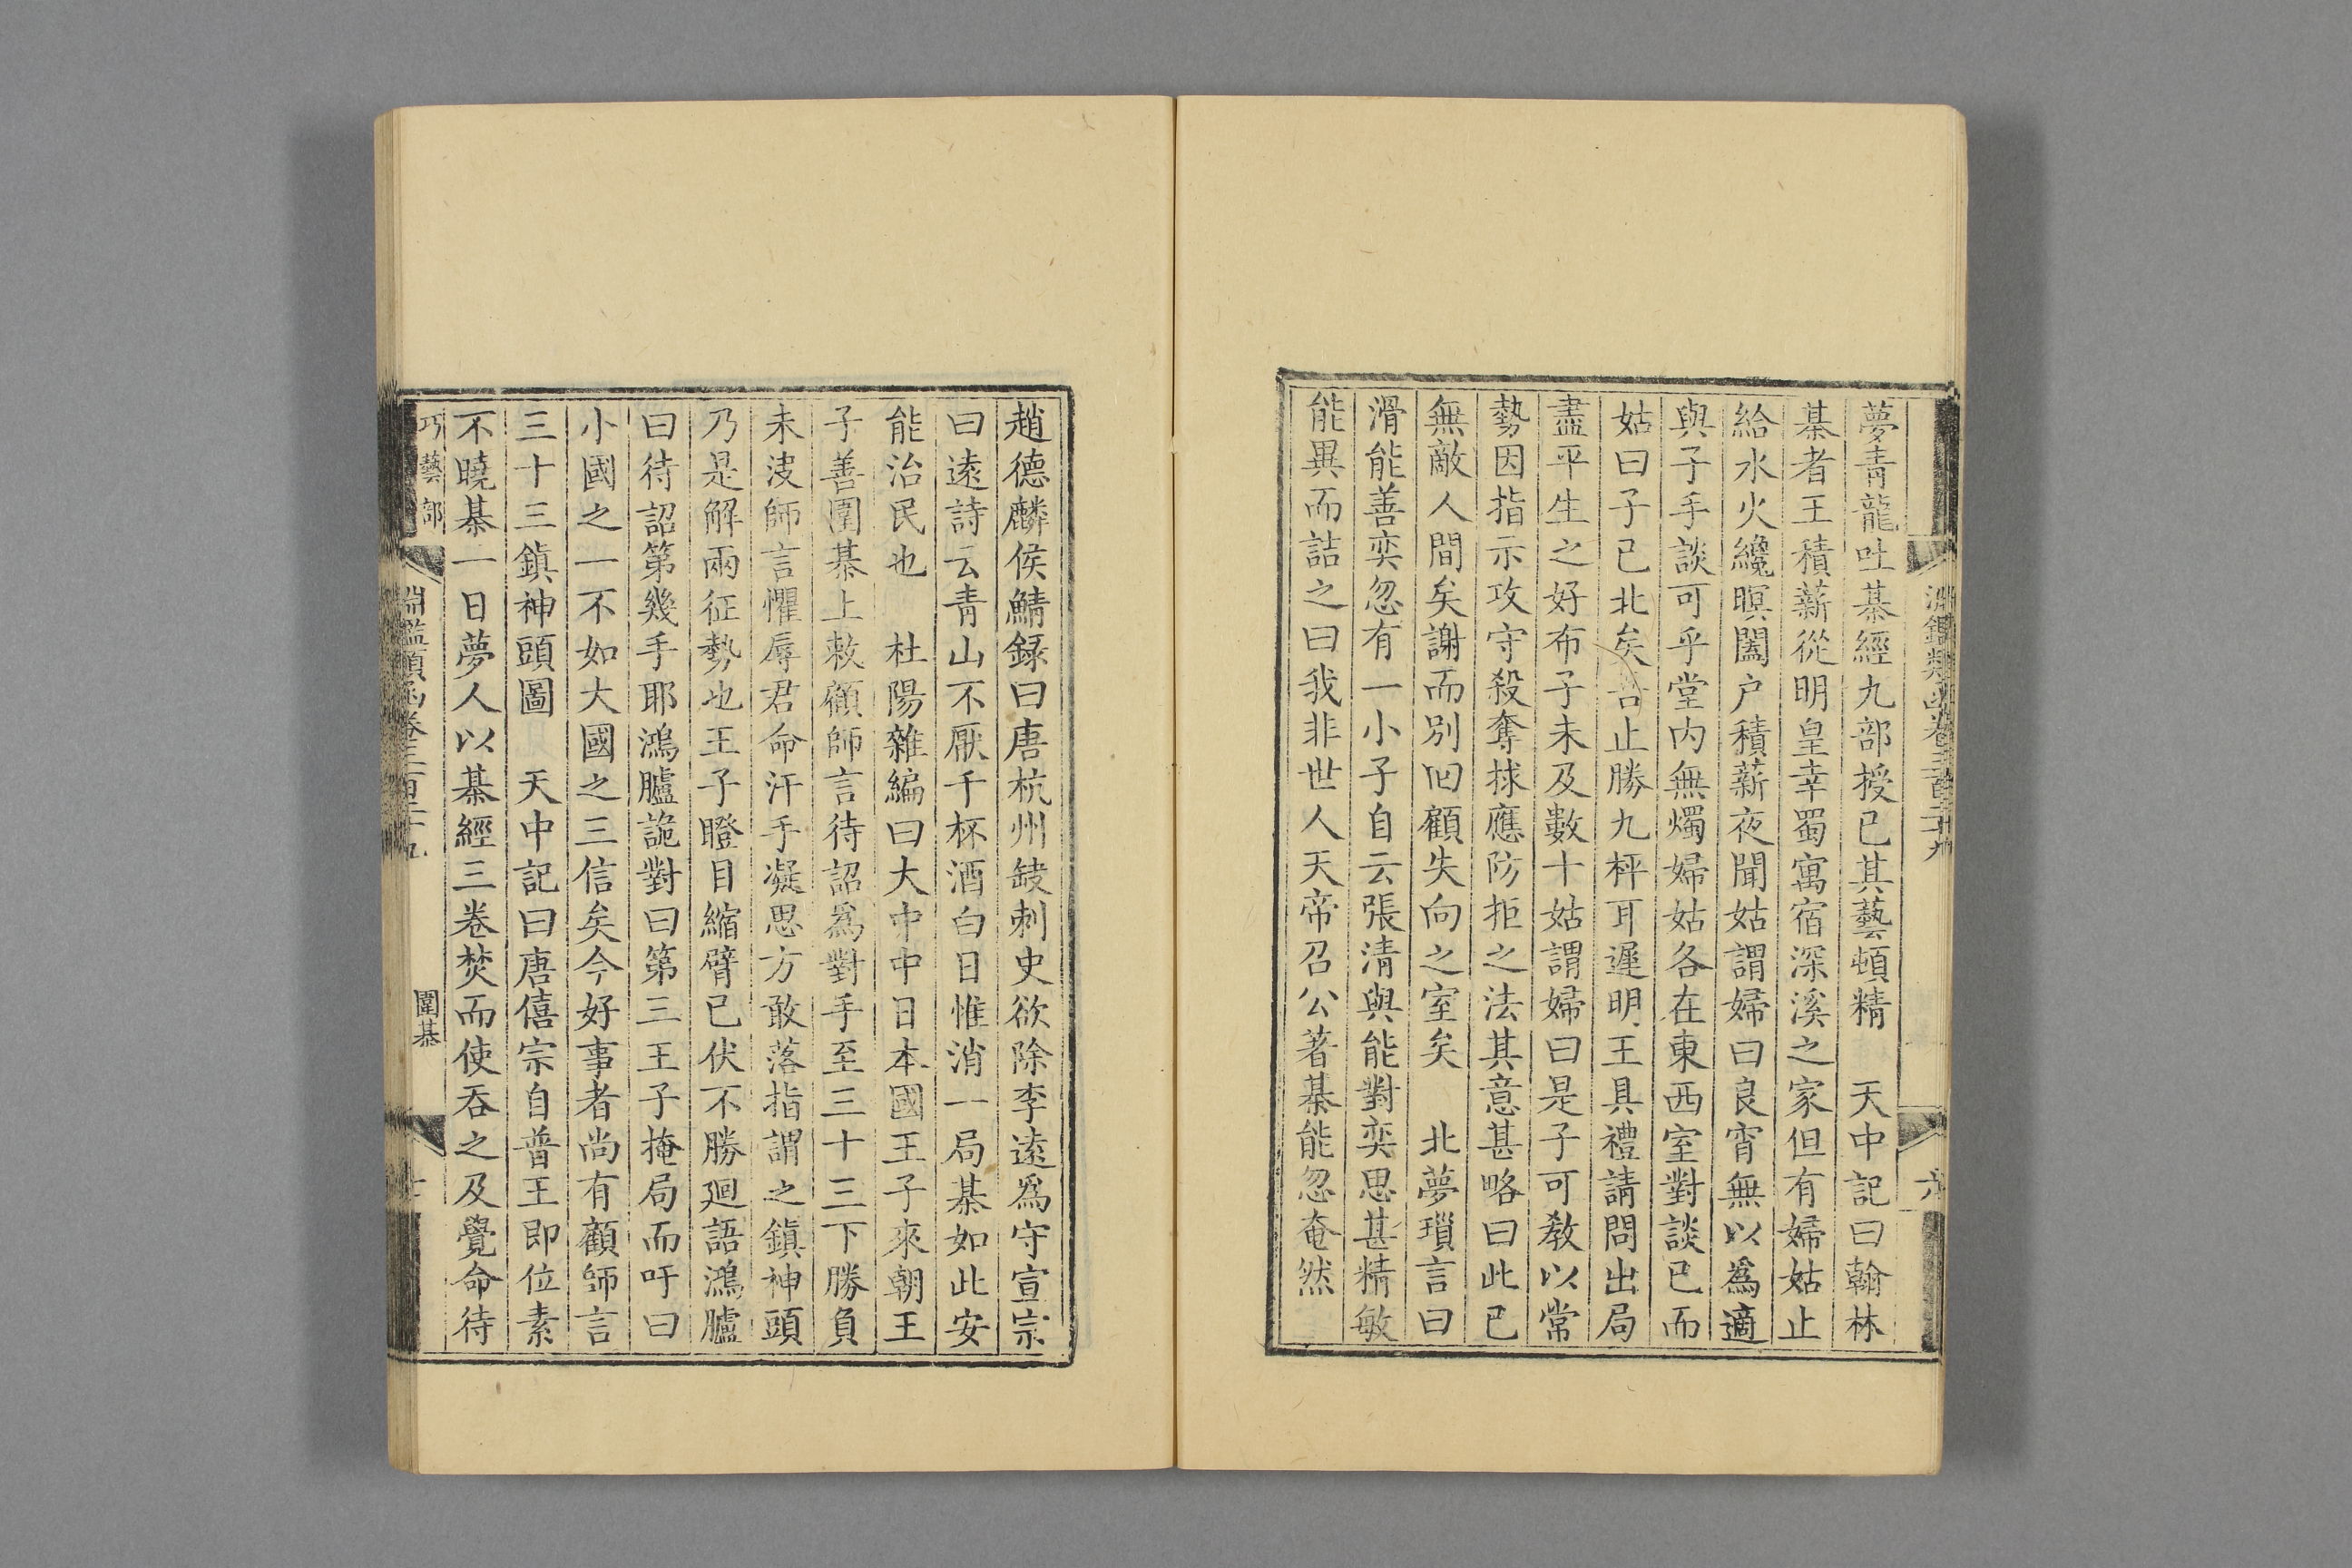 淵鑑類函卷三百二十九
六
夢青龍吐棊經九部授已其藝頓精　天中記曰翰林
棊者王積薪從明皇幸蜀寓宿深溪之家但有婦姑止
給水火纔暝闔户積薪夜聞姑謂婦曰良宵無以爲適
與子手談可乎堂内無燭婦姑各在東西室對談已而
姑曰子已北矣吾止勝九枰耳遲明王具禮請問出局
盡平生之好布子未及數十姑謂婦曰是子可教以常
勢因指示攻守殺奪捄應防拒之法其意甚略曰此已
無敵人間矣謝而別回顧失向之室矣　北夢瑣言曰
滑能善奕忽有一小子自云張清與能對奕思甚精敏
能異而詰之曰我非世人天帝召公著棊能忽奄然
趙德麟侯鯖録曰唐杭州缺刺史欲除李遠爲守宣宗
曰遠詩云青山不厭千杯酒白日惟消一局棊如此安
能治民也　杜陽雜編曰大中中日本國王子來朝王
子善圍棊上敕顧師言待詔爲對手至三十三下勝負
未決師言懼辱君命汗手凝思方敢落指謂之鎮神頭
乃是解兩征勢也王子瞪目縮臂已伏不勝廻語鴻臚
曰待詔第幾手耶鴻臚詭對曰第三王子掩局而吁曰
小國之一不如大國之三信矣今好事者尚有顧師言
三十三鎮神頭圖　天中記曰唐僖宗自普王即位素
不曉棊一日夢人以棊經三卷焚而使吞之及覺命待
巧藝部
淵鑑類函卷三百二十九
圍棊